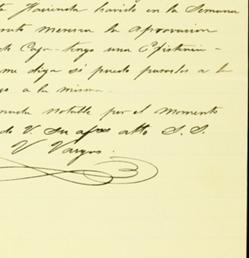 Hacienda havido en la Semana
merezca la aprovacion
de Caja tengo una Existencia
me diga si puedo pasarlos a la
a la misma.
notable por el momento
de V. su afmo atto S. S.
V Vargas.